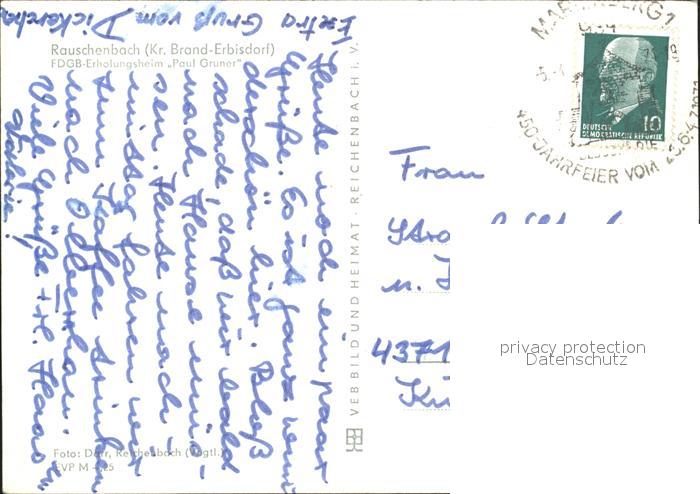 Extra Gruß vom Dickerchen
Rauschenbach (Kr. Brand-Erbisdorf)
FDGB-Erholungsheim „Paul Gruner"
Heute noch ein paar
Grüße. Es ist ganz
derschön hier. Bloß
schade, daß wir bald
nach Hause müs-
sen. Heute nach-
mittag fahren wir
zum Kaffee trinken
nach Olbernhau.
Viele Grüße
Foto: Darr, Reichenbach (Vogtl.)
EVP M -,25
VEB BILD UND HEIMAT · REICHENBACH i. V.
MARIENBERG 1
450-JAHRFEIER VOM
DEUTSCHE
DEMOKRATISCHE REPUBLIK
10
Frau
u.
4371
privacy protection
Datenschutz